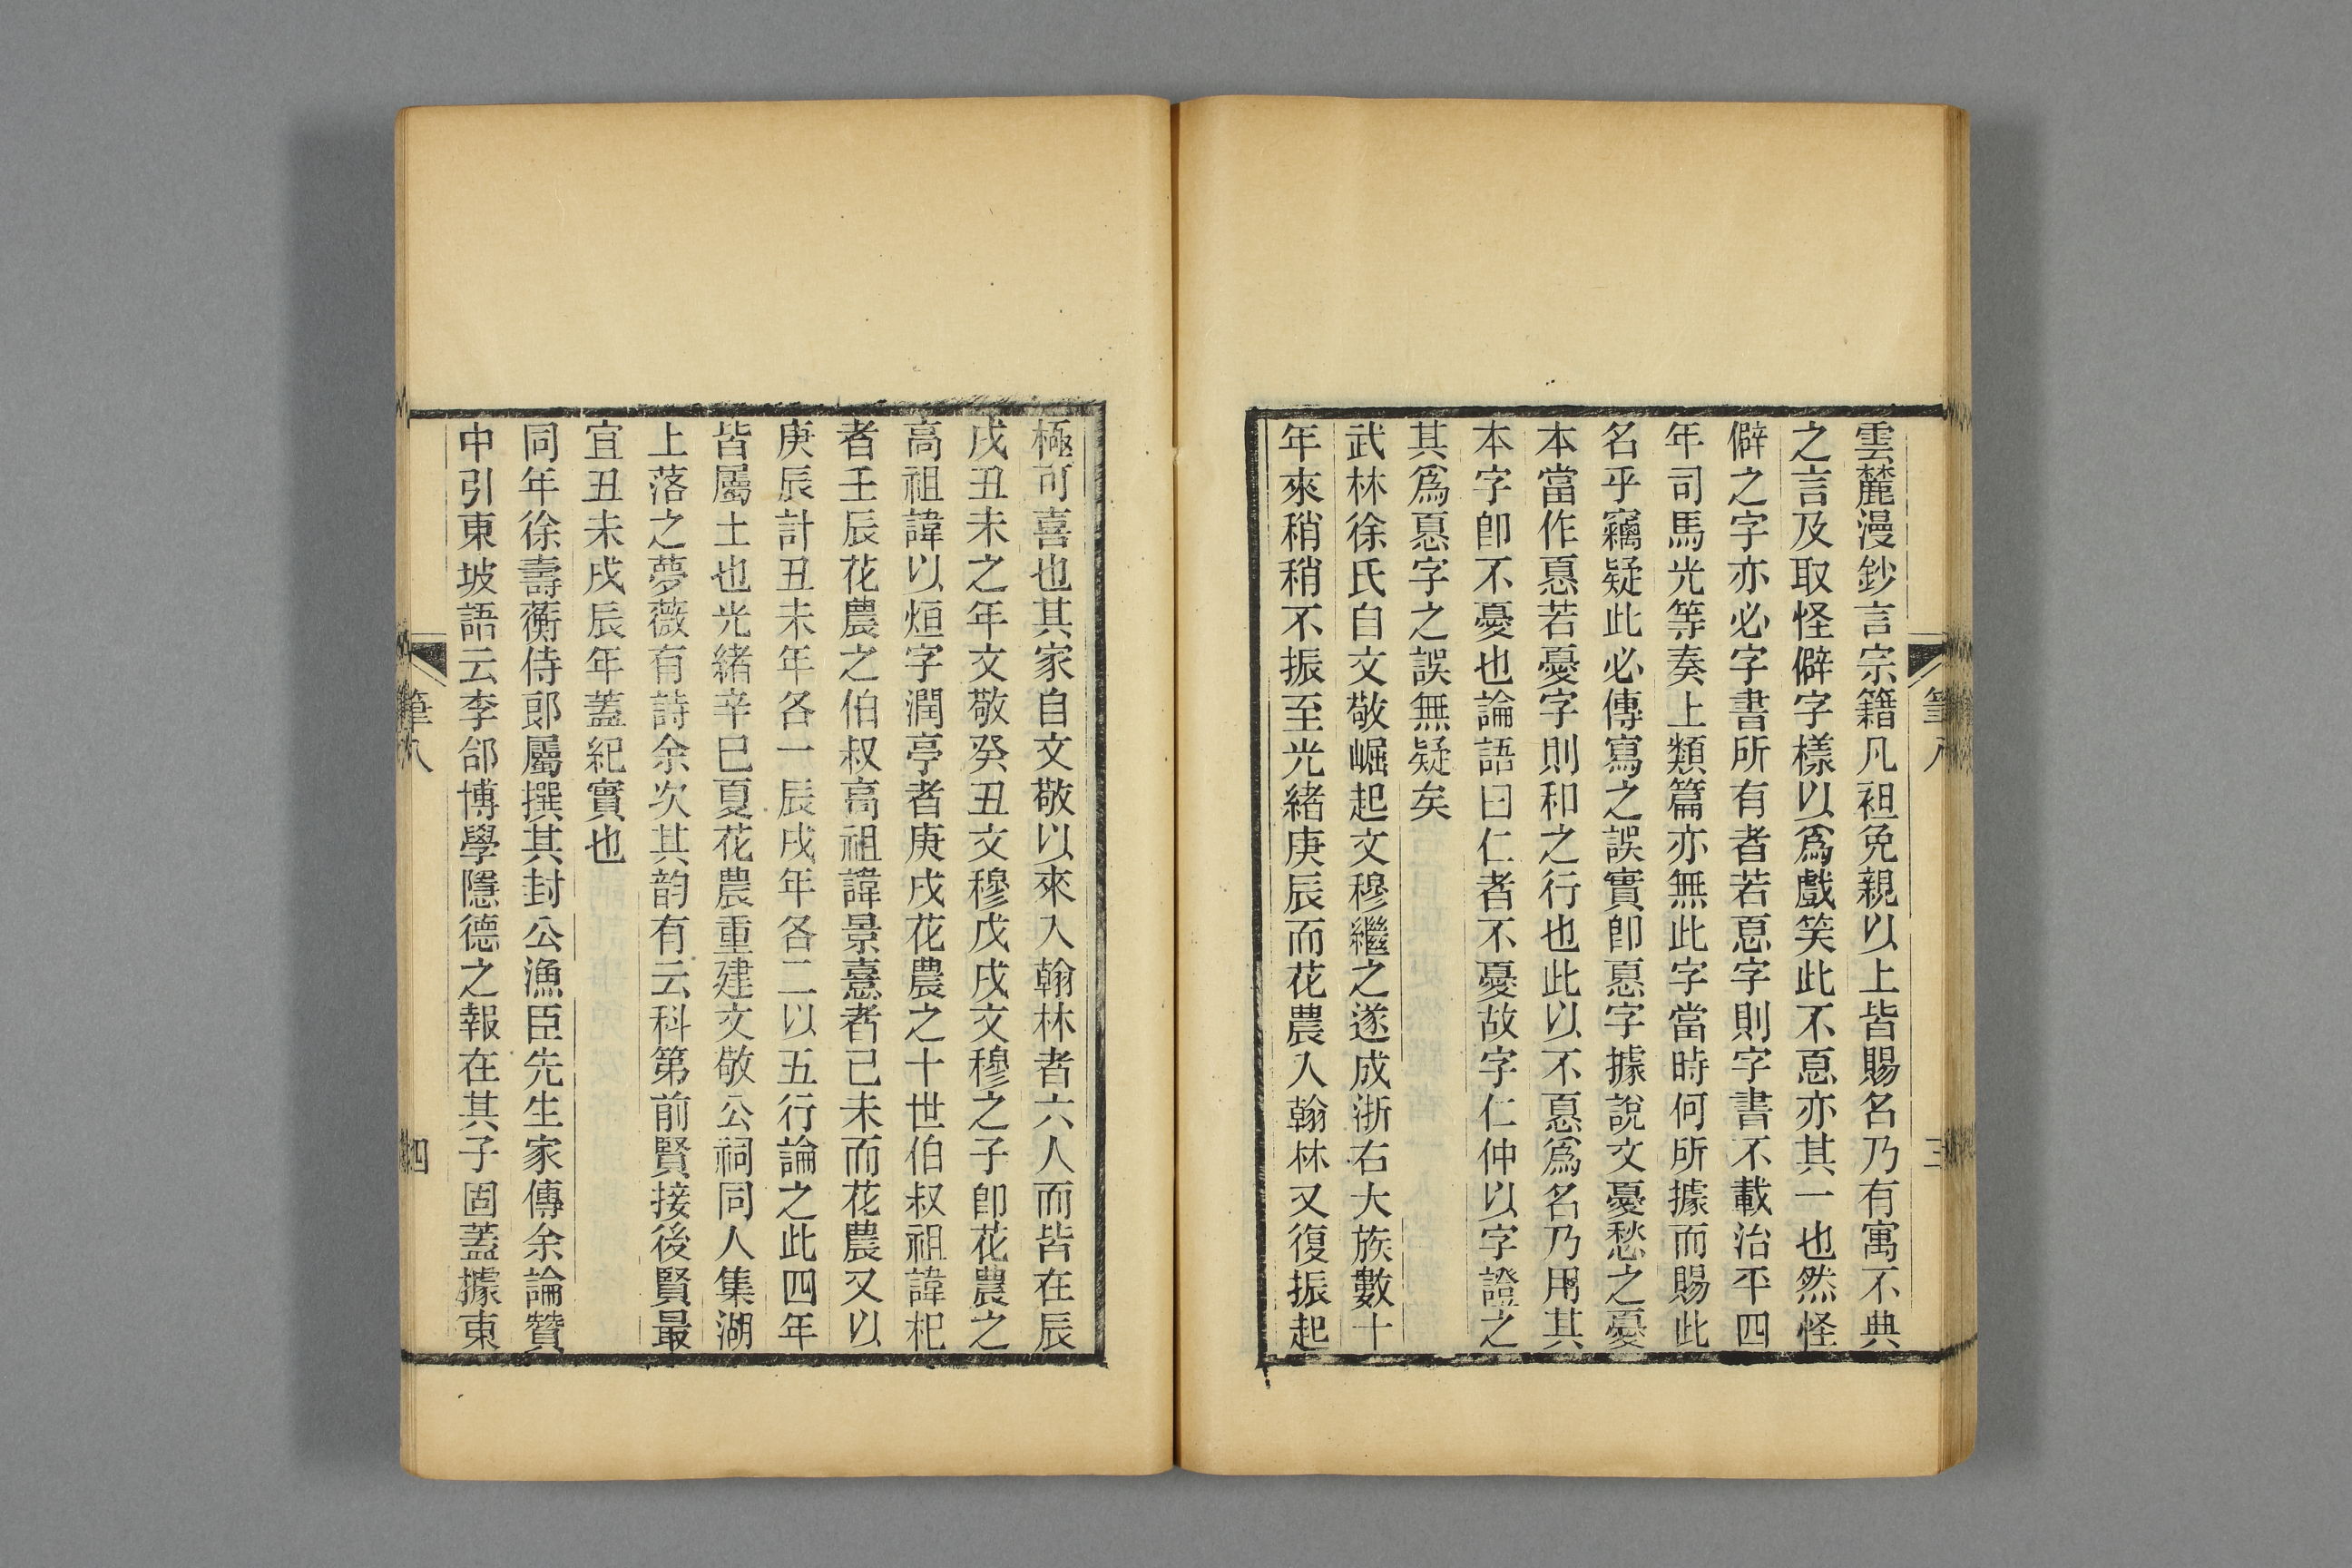 雲麓漫鈔言宗籍凡袒免親以上皆賜名乃有寓不典
之言及取怪僻字㨾以爲戲笑此不㥑亦其一也然怪
僻之字亦必字書所有者若㥑字則字書不載治平四
年司馬光等奏上類篇亦無此字當時何所據而賜此
名乎竊疑此必傳寫之誤實卽㥑字據說文憂愁之憂
本當作㥑若憂字則和之行也此以不㥑爲名乃用其
本字卽不憂也論語曰仁者不憂故字仁仲以字證之
其爲㥑字之誤無疑矣
武林徐氏自文敬崛起文穆繼之遂成浙右大族數十
年來稍稍不振至光緒庚辰而花農入翰林又復振起
極可喜也其家自文敬以來入翰林者六人而皆在辰
戌丑未之年文敬癸丑文穆戊戌文穆之子卽花農之
高祖諱以烜字潤亭者庚戌花農之十世伯叔祖諱杞
者壬辰花農之伯叔高祖諱景熹者己未而花農又以
庚辰計丑未年各一辰戌年各二以五行論之此四年
皆屬土也光緒辛巳夏花農重建文敬公祠同人集湖
上落之夢薇有詩余次其韵有云科第前賢接後賢最
宜丑未戌辰年蓋紀實也
同年徐壽蘅侍郎屬撰其封公漁臣先生家傳余論贊
中引東坡語云李郃博學隱德之報在其子固蓋據東
筆八
四